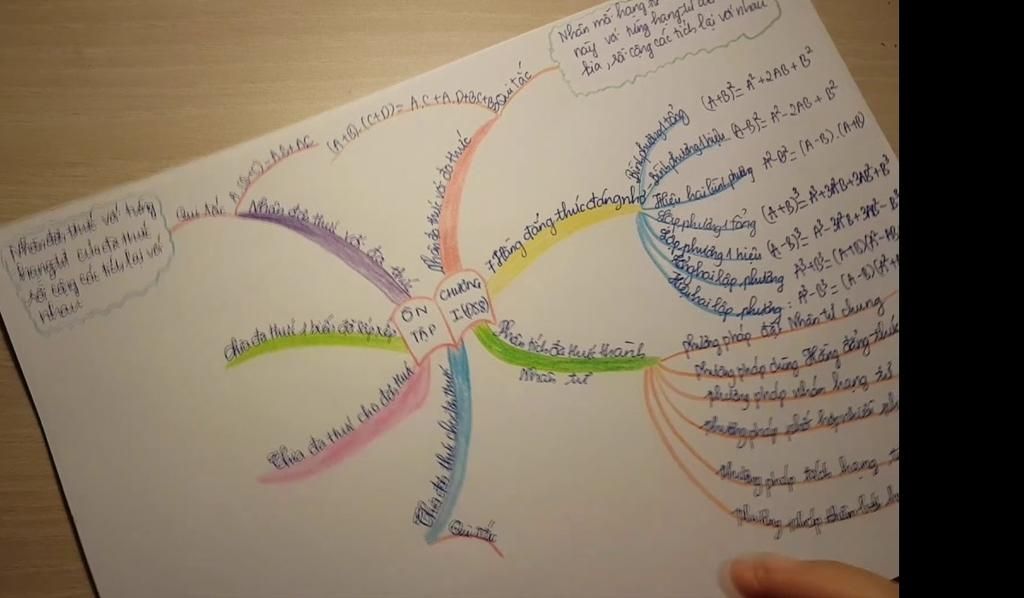 ÔN
TẬP
CHƯƠNG
I (ĐS8)
Nhân đơn thức với đa thức
Qui tắc
Nhân đơn thức với từng
hạng tử của đa thức
rồi cộng các tích lại với
nhau
Nhân đa thức với đa thức
Qui tắc
(A+B).(C+D) = A.C+A.D+BC+B
Nhân mỗi hạng tử
này với từng hạng tử
kia, rồi cộng các tích lại với nhau
7 Hằng đẳng thức đáng nhớ
Bình phương 1 tổng (A+B)²= A²+2AB+B²
Bình phương 1 hiệu (A-B)²= A²-2AB+B²
Hiệu hai bình phương A²-B²= (A-B).(A+B)
Lập phương 1 tổng (A+B)³= A³+3A²B+3AB²+B³
Lập phương 1 hiệu (A-B)³= A³-3A²B+3AB²-B³
Tổng hai lập phương A³+B³= (A+B)(A²-AB
Hiệu hai lập phương: A³-B³= (A-B)(A²+
Phân tích đa thức thành
Nhân tử
phương pháp đặt Nhân tử chung
phương pháp dùng Hằng đẳng thức
phương pháp nhóm hạng tử
phương pháp phối hợp nhiều
phương pháp tách hạng
phương pháp thêm bớt
Chia đa thức 1 biến đã sắp xếp
Chia đa thức cho đơn thức
Chia đa thức cho đơn thức
Qui tắc